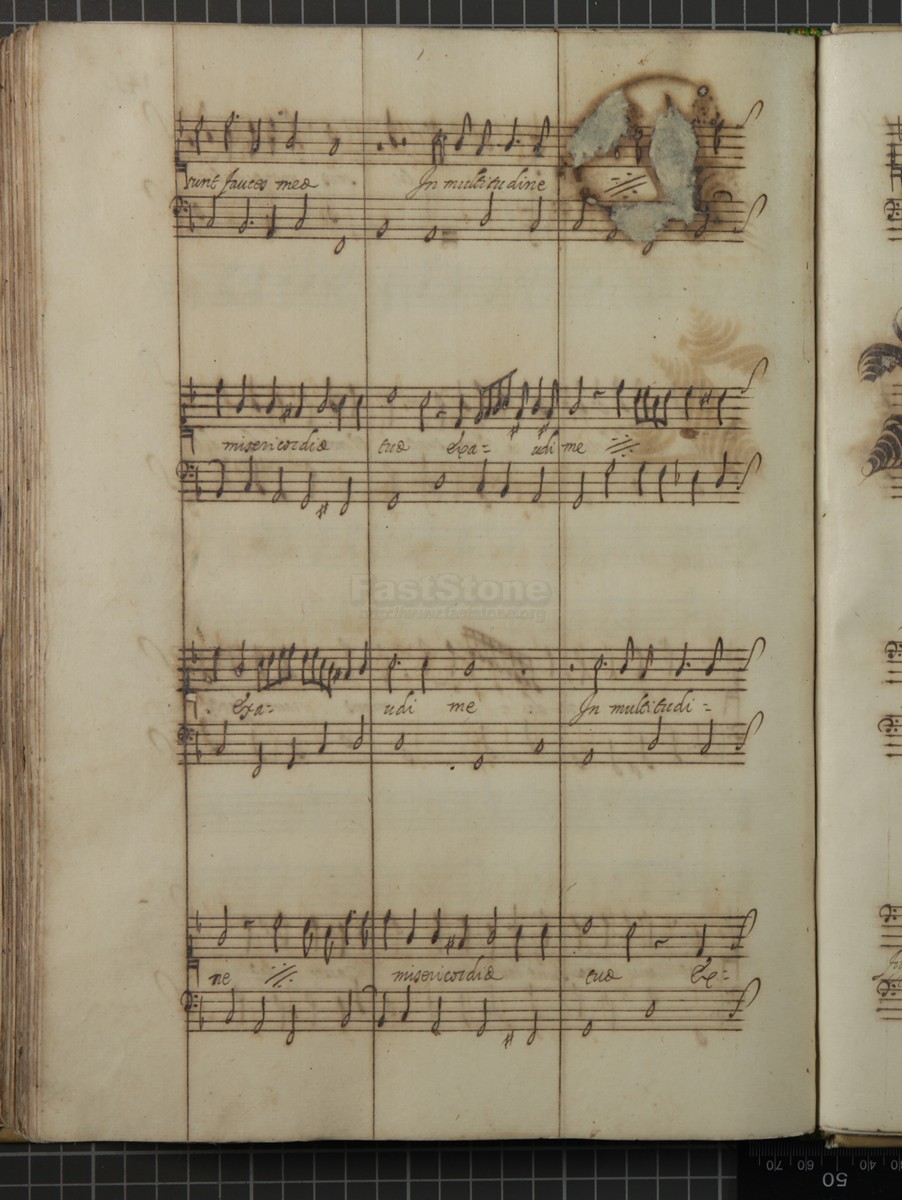 sunt fauces meæ In multitudine ·//·
misericordiæ tuæ Exa= udi me ·//·
Exa= udi me In multitudi=
ne ·//· misericordiæ tuæ Ex=
FastStone
70 60 50 40